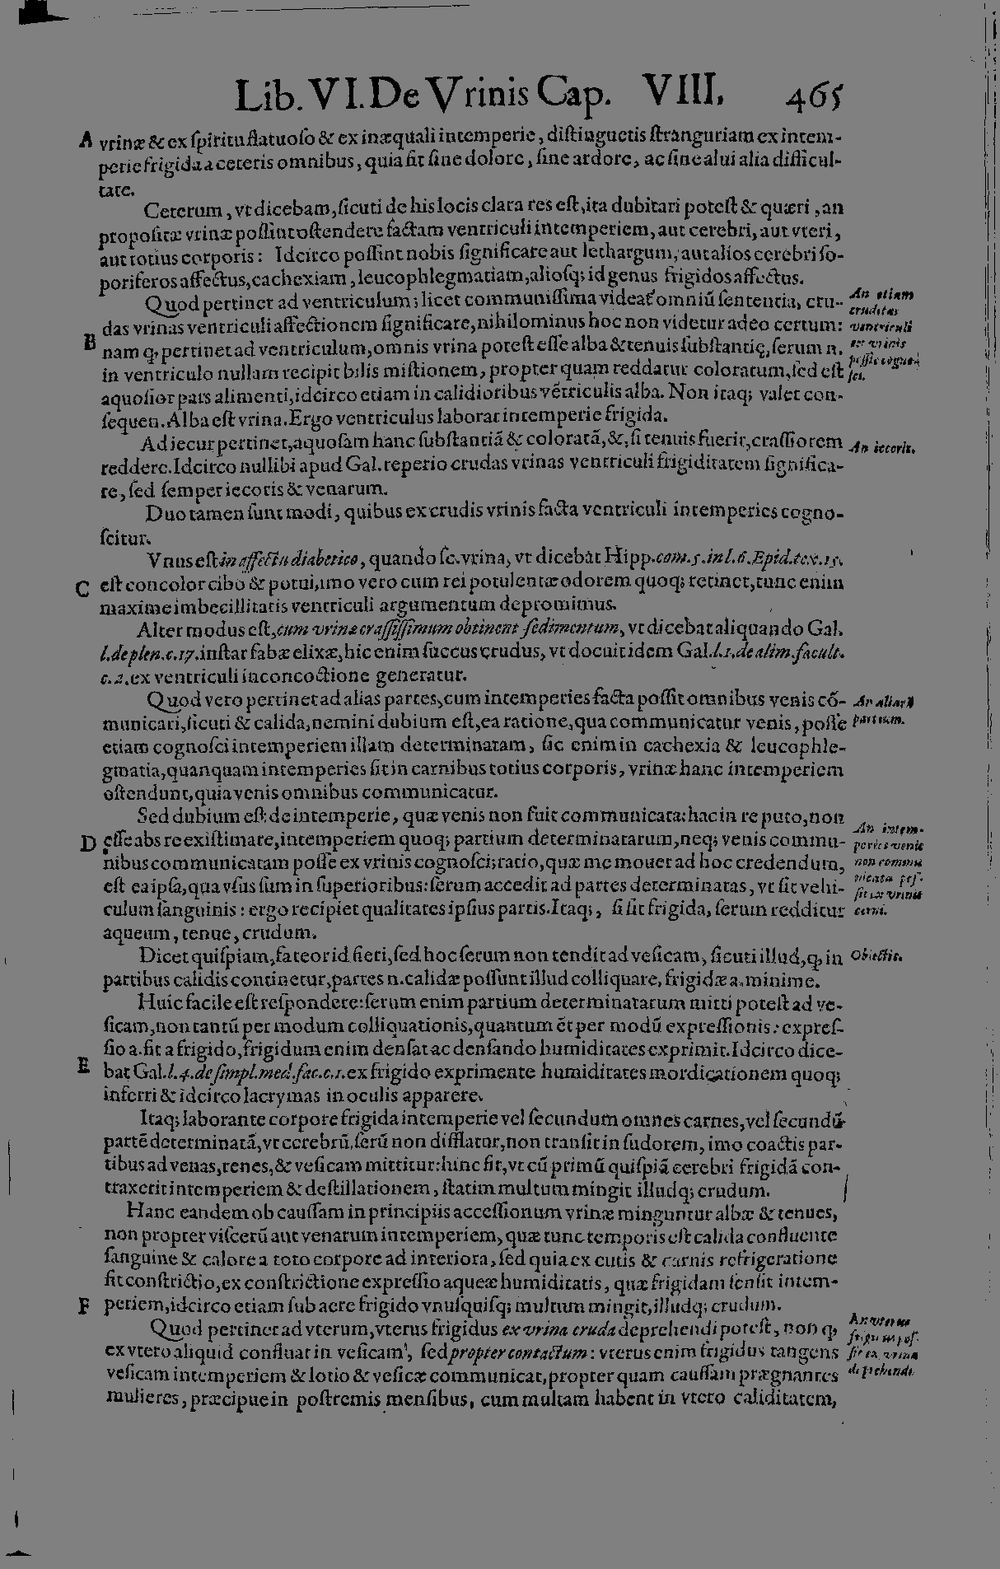 Lib. VI. De Vrinis Cap. VIII. 465
A vrinæ & ex ſpiritu flatuoſo & ex inæquali intemperie, diſtinguetis ſtranguriam ex intem-
perie frigida a ceteris omnibus, quia fit ſine dolore, ſine ardore, ac ſine alui alia difficul-
tate.
Ceterum, vt dicebam, ſicuti de his locis clara res eſt, ita dubitari poteſt & quæri, an
propoſitæ vrinæ poſſint oſtendere factam ventriculi intemperiem, aut cerebri, aut vteri,
aut totius corporis: Idcirco poſſint nobis ſignificare aut lethargum, aut alios cerebri ſo-
poriferos affectus, cachexiam, leucophlegmatiam, alioſq; id genus frigidos affectus.
Quod pertinet ad ventriculum; licet communiſſima videat' omniū ſententia, cru-
das vrinas ventriculi affectionem ſignificare, nihilominus hoc non videtur adeo certum:
B nam q, pertinet ad ventriculum, omnis vrina poteſt eſſe alba & tenuis ſubſtantię, ſerum n.
in ventriculo nullam recipit bilis miſtionem, propter quam reddatur coloratum, ſed eſt
aquoſior pars alimenti, idcirco etiam in calidioribus vētriculis alba. Non itaq; valet con-
ſequen. Alba eſt vrina. Ergo ventriculus laborat intemperie frigida.
An etiam
cruditas
ventriculi
ex vrinis
poſſit cognoſ-
ſci.
Ad iecur pertinet, aquoſam hanc ſubſtantiā & coloratā, &, ſi tenuis fuerit, craſſiorem
reddere. Idcirco nullibi apud Gal. reperio crudas vrinas ventriculi frigiditatem ſignifica-
re, ſed ſemper iecoris & venarum.
An iecoris.
Duo tamen ſunt modi, quibus ex crudis vrinis facta ventriculi intemperies cogno-
ſcitur.
Vnus eſt in affectu diabetico, quando ſc. vrina, vt dicebat Hipp. com. 5. in l. 6. Epid. tex. 15.
C eſt concolor cibo & potui, imo vero cum rei potulentæ odorem quoq; retinet, tunc enim
maxime imbecillitatis ventriculi argumentum depromimus.
Alter modus eſt, cum vrinæ craſſiſſimum obtinent ſedimentum, vt dicebat aliquando Gal.
l. de plen. c. 17. inſtar fabæ elixæ, hic enim ſuccus crudus, vt docuit idem Gal. l. 1. de alim. facult.
c. 2. ex ventriculi inconcoctione generatur.
Quod vero pertinet ad alias partes, cum intemperies facta poſſit omnibus venis cō-
municari, ſicuti & calida, nemini dubium eſt, ea ratione, qua communicatur venis, poſſe
etiam cognoſci intemperiem illam determinatam, ſic enim in cachexia & leucophle-
gmatia, quanquam intemperies ſit in carnibus totius corporis, vrinæ hanc intemperiem
oſtendunt, quia venis omnibus communicatur.
An aliarū
partium.
Sed dubium eſt de intemperie, quæ venis non fuit communicata: hac in re puto, non
D eſſe abs re exiſtimare, intemperiem quoq; partium determinatarum, neq; venis commu-
nibus communicatam poſſe ex vrinis cognoſci; ratio, quæ me mouet ad hoc credendum,
eſt ea ipſa, qua vſus ſum in ſuperioribus: ſerum accedit ad partes determinatas, vt ſit vehi-
culum ſanguinis: ergo recipiet qualitates ipſius partis. Itaq;, ſi ſit frigida, ſerum redditur
aqueum, tenue, crudum.
An intem-
peries venis
non commu
nicata poſ-
ſit ex vrinis
cerni.
Dicet quiſpiam, fateor id fieri, ſed hoc ſerum non tendit ad veſicam, ſicuti illud, q, in
partibus calidis continetur, partes n. calidæ poſſunt illud colliquare, frigidæ a. minime.
Obiectio.
Huic facile eſt reſpondere: ſerum enim partium determinatarum mitti poteſt ad ve-
ſicam, non tantū per modum colliquationis, quantum ēt per modū expreſſionis: expreſ-
ſio a. fit a frigido, frigidum enim denſat ac denſando humiditates exprimit. Idcirco dice-
E bat Gal. l. 4. de ſimpl. med. fac. c. 1. ex frigido exprimente humiditates mordicationem quoq;
inferri & idcirco lacrymas in oculis apparere.
Itaq; laborante corpore frigida intemperie vel ſecundum omnes carnes, vel ſecundū
partē determinatā, vt cerebrū, ſerū non difflatur, non tranſit in ſudorem, imo coactis par-
tibus ad venas, renes, & veſicam mittitur: hinc fit, vt cū primū quiſpiā cerebri frigidā con-
traxerit intemperiem & deſtillationem, ſtatim multum mingit illudq; crudum.
Hanc eandem ob cauſſam in principiis acceſſionum vrinæ minguntur albæ & tenues,
non propter viſcerū aut venarum intemperiem, quæ tunc temporis eſt calida confluente
ſanguine & calore a toto corpore ad interiora, ſed quia ex cutis & carnis refrigeratione
fit conſtrictio, ex conſtrictione expreſſio aqueæ humiditatis, quæ frigidam ſenſit intem-
F periem, idcirco etiam ſub aere frigido vnuſquiſq; multum mingit, illudq; crudum.
Quod pertinet ad vterum, vterus frigidus ex vrina cruda deprehendi poteſt, non q,
ex vtero aliquid confluat in veſicam, ſed propter contactum: vterus enim frigidus tangens
veſicam intemperiem & lotio & veſicæ communicat, propter quam cauſſam prægnantes
mulieres, præcipue in poſtremis menſibus, cum multam habent in vtero caliditatem,
An vterus
frigidus poſ-
ſit ex vrina
deprehendi.